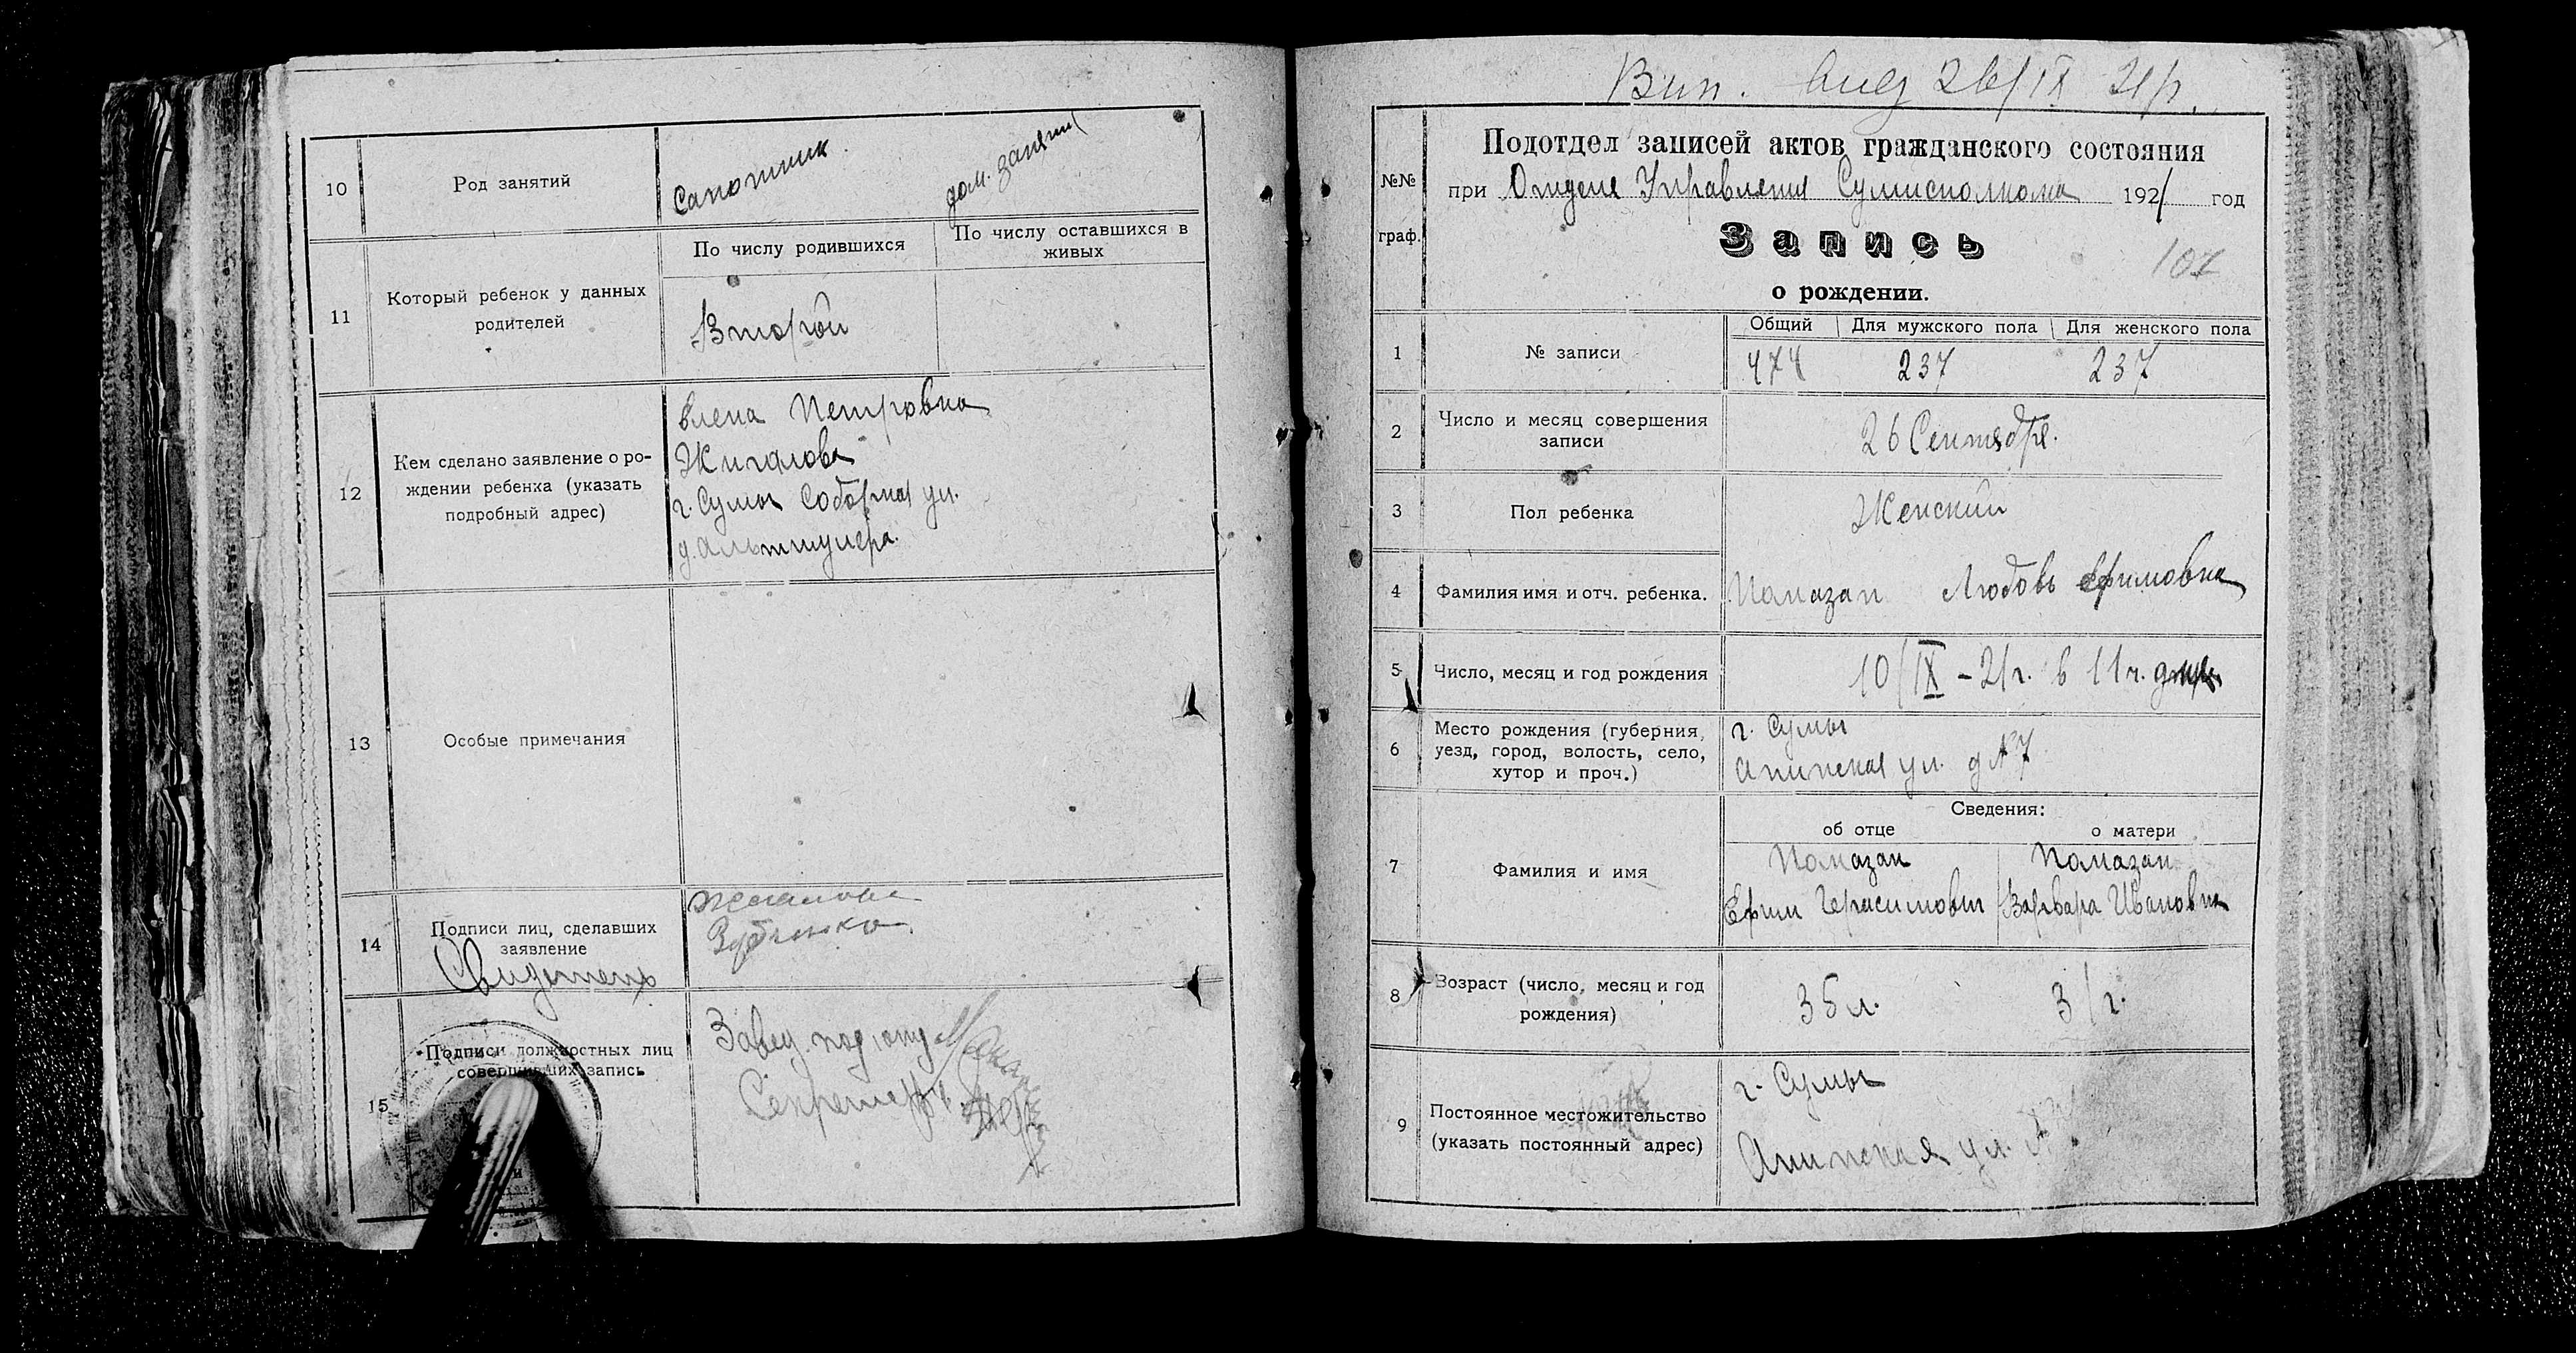 10
Род занятий
Сапожник.
дом. занятия
11
Который ребенок у данных
родителей
По числу родившихся
По числу оставшихся в
живых
Второй
12
Кем сделано заявление о ро-
ждении ребенка (указать
подробный адрес)
Елена Петровна
Жигалова
г. Сумы Соборная ул.
д. Альтшулера.
13
Особые примечания
14
Подписи лиц, сделавших
заявление
Свидетель
Жигалова
15
Подписи должностных лиц
совершивших запись
Завед. под
Секретарь
Вип. 26/IX 21р.
№№
граф.
Подотдел записей актов гражданского состояния
при Отделе Управления Сумисполкома 1921 год
Запись
107
о рождении.
1
№ записи
Общий
Для мужского пола
Для женского пола
474
237
237
2
Число и месяц совершения
записи
26 Сентября.
3
Пол ребенка
Женский
4
Фамилия имя и отч. ребенка.
Помазан Любовь Ефимовна
5
Число, месяц и год рождения
10/IX – 21г. в 11ч.
6
Место рождения (губерния,
уезд, город, волость, село,
хутор и проч.)
г. Сумы
ул. д № 7
Сведения:
об отце
о матери
7
Фамилия и имя
Помазан
Ефим Герасимович
Помазан
Варвара Ивановна
8
Возраст (число, месяц и год
рождения)
35 л.
31 г.
9
Постоянное местожительство
(указать постоянный адрес)
г. Сумы
ул. №